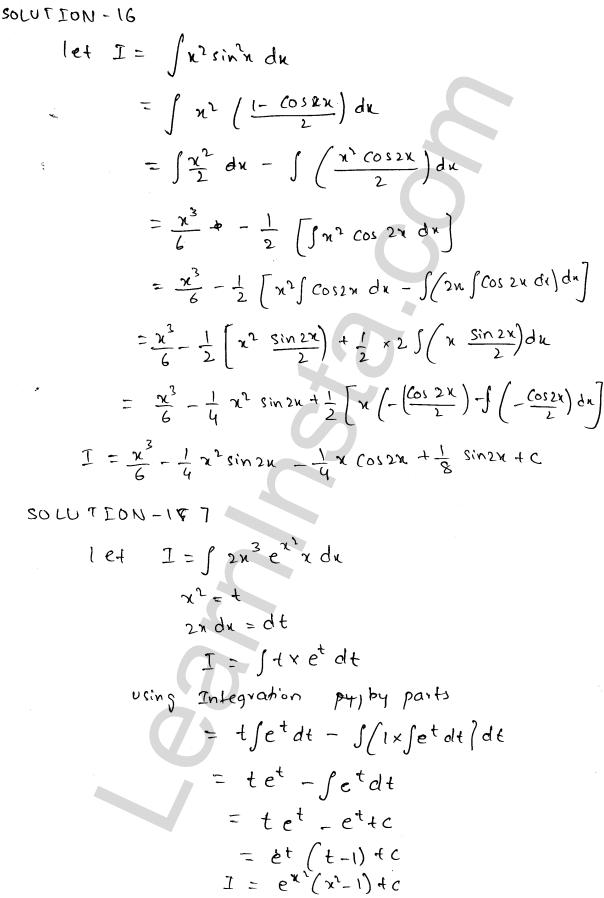 SOLUTION - 16
let I = ∫ x² sin²x dx
= ∫ x² ( (1 - cos 2x) / 2 ) dx
= ∫ x²/2 dx - ∫ ( x² cos 2x / 2 ) dx
= x³/6 - 1/2 [ ∫ x² cos 2x dx ]
= x³/6 - 1/2 [ x² ∫ cos 2x dx - ∫ (2x ∫ cos 2x dx) dx ]
= x³/6 - 1/2 [ x² sin 2x / 2 ) + 1/2 × 2 ∫ ( x sin 2x / 2 ) dx
= x³/6 - 1/4 x² sin 2x + 1/2 [ x ( - (cos 2x / 2 ) - ∫ ( - cos 2x / 2 ) dx ]
I = x³/6 - 1/4 x² sin 2x - 1/4 x cos 2x + 1/8 sin 2x + c
SOLUTION - 17
let I = ∫ 2x³ e^x² x dx
x² = t
2x dx = dt
I = ∫ t × e^t dt
using Integration by parts
= t ∫ e^t dt - ∫ ( 1 × ∫ e^t dt ) dt
= t e^t - ∫ e^t dt
= t e^t - e^t + c
= e^t ( t - 1 ) + c
I = e^x² ( x² - 1 ) + c
LearnInsta.com